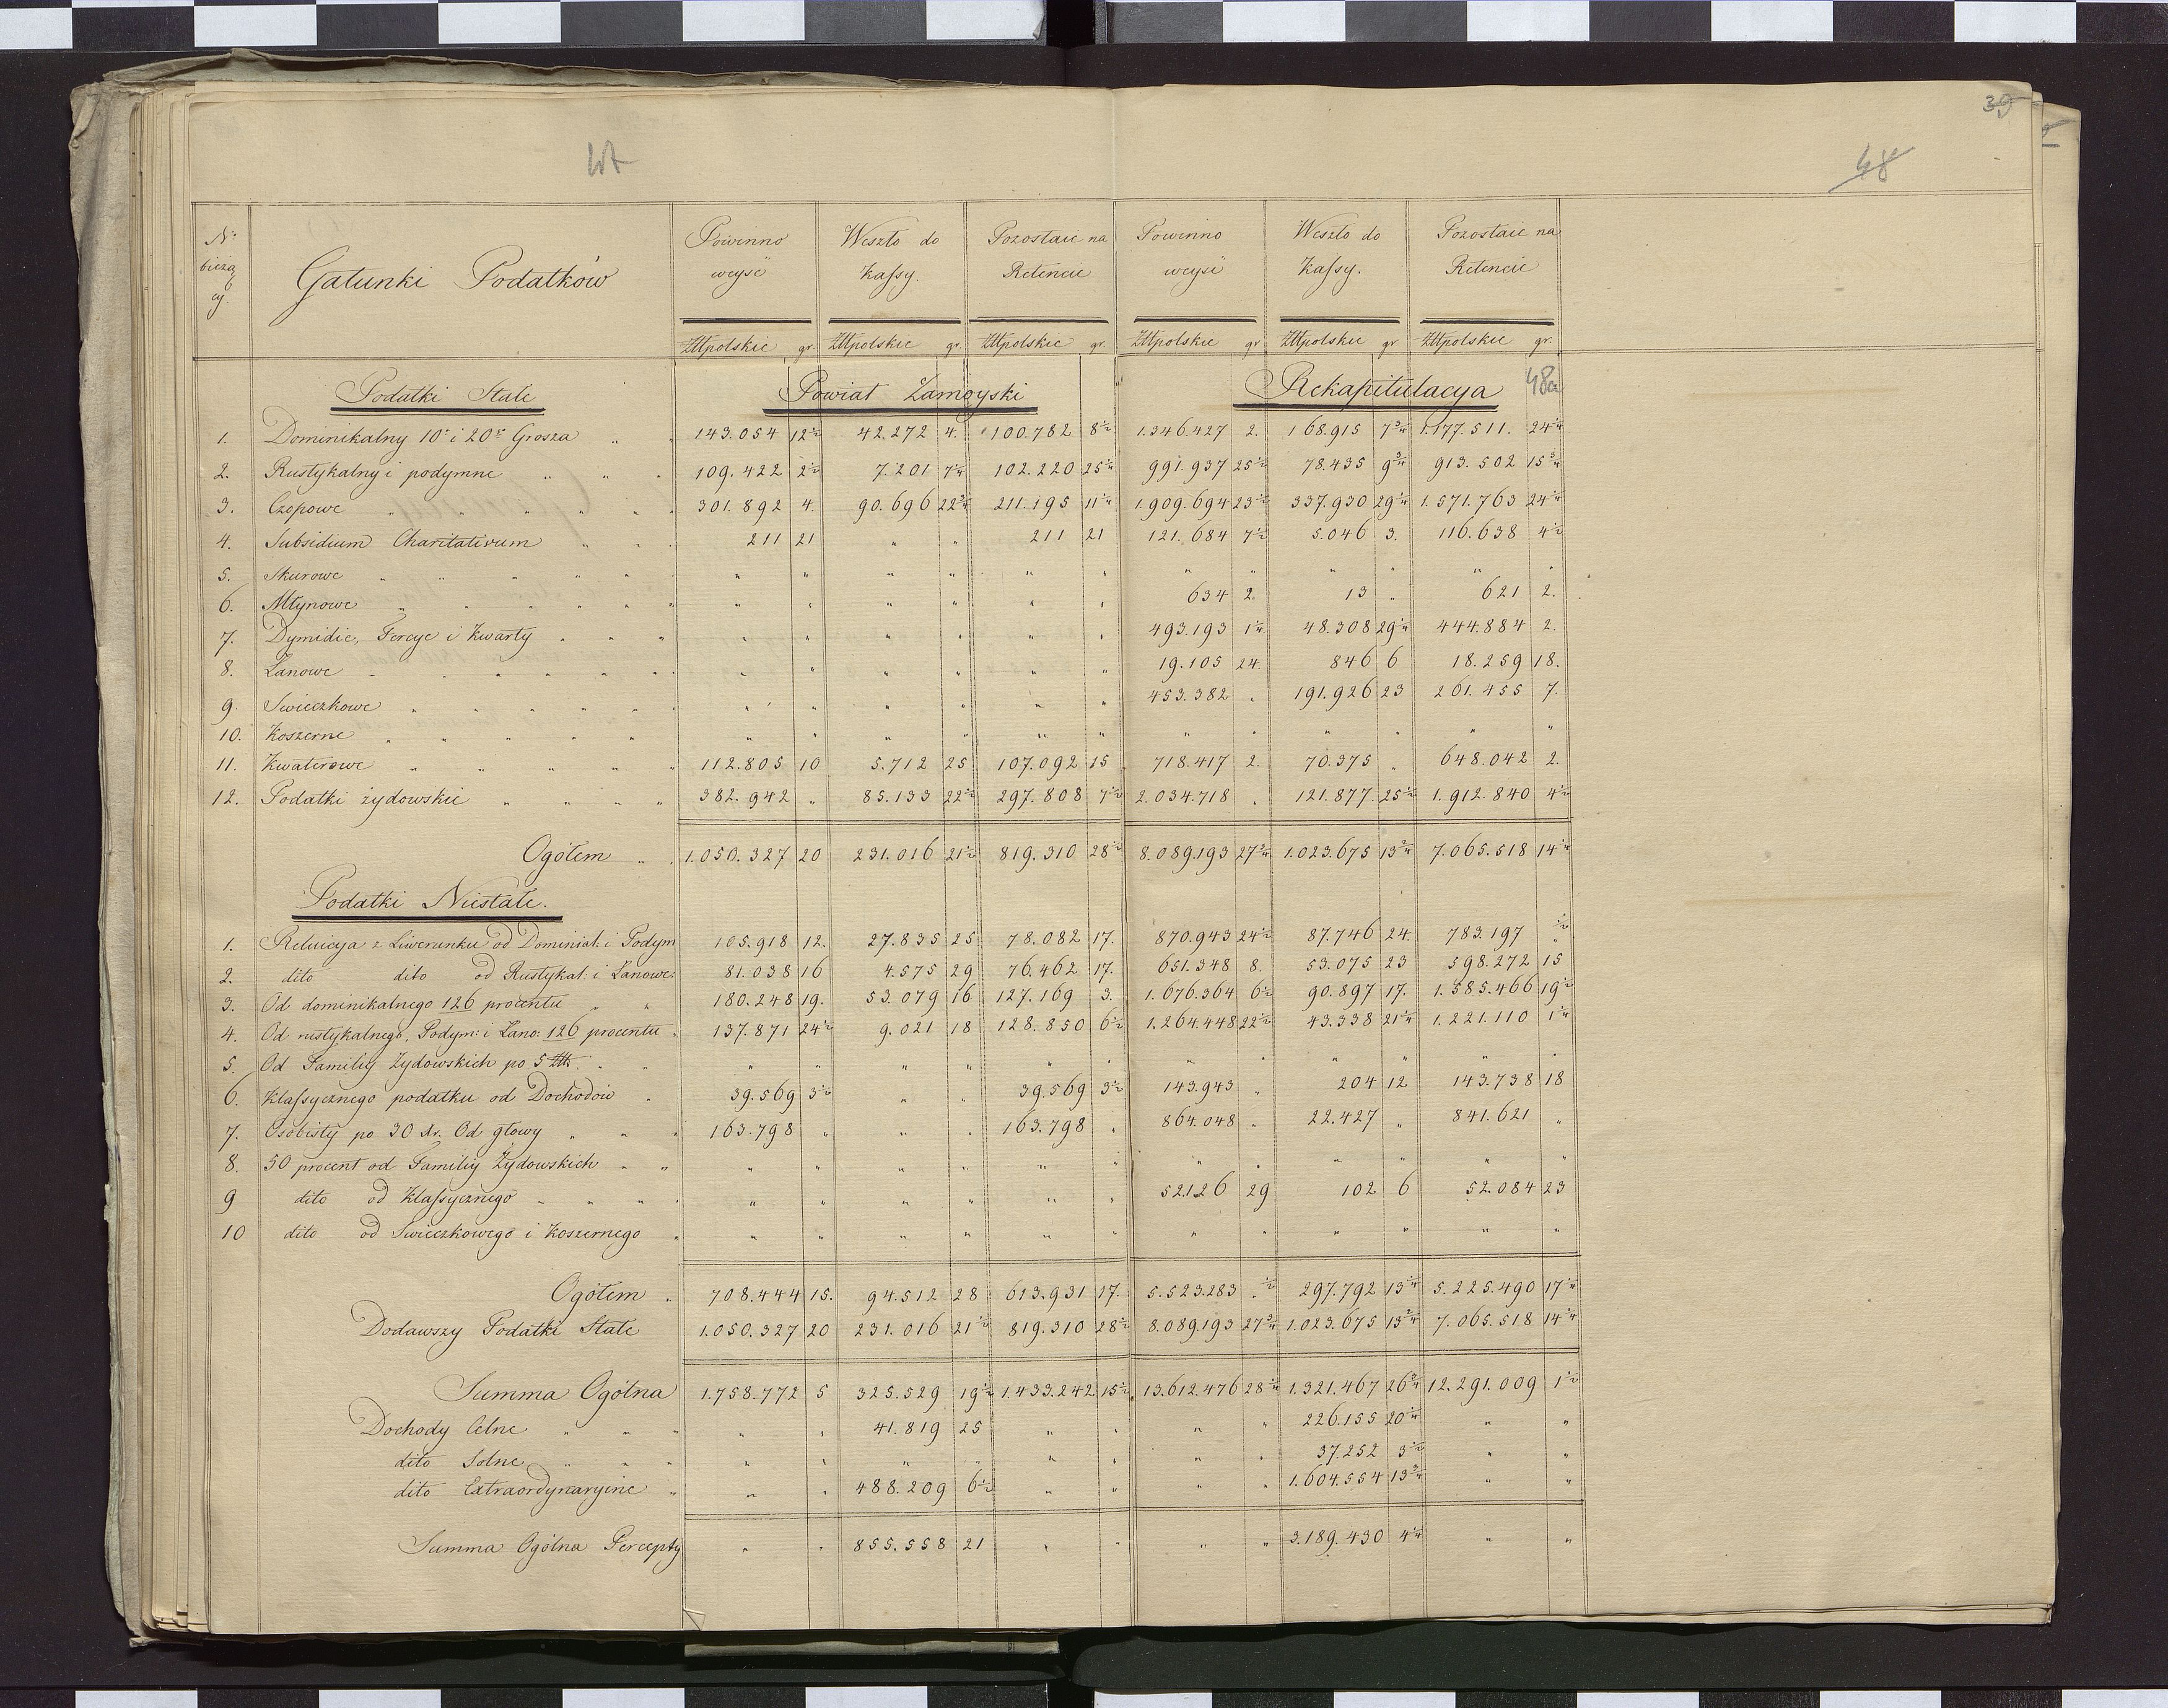 39
48
N°
bieżą
cy.
Gatunki Podatków
Powinno weyść
Weszło do Kassy.
Pozostaie na Retencie
Powinno weyść
Weszło do Kassy.
Pozostaie na Retencie
Złłpolskie gr. Złłpolskie gr. Złłpolskie gr. Złłpolskie gr Złłpolskie gr Złłpolskie gr.
Podatki Stałe Powiat Zamoyski Rekapitulacya 48a
1. Dominikalny 10° i 20° Grosza " " 143.054 12½ 42.272 4. 100.782 8½ 1.346.427 2. 168.915 7¾ 1.177.511. 24¼
2. Rustykalny i podymne " " " 109.422 2½ 7.201 7¼ 102.220 25¼ 991.937 25½ 78.435 9¾ 913.502 15¾
3. Czopowe " " " " " " 301.892 4. 90.696 22¾ 211.195 11¼ 1.909.694 23½ 337.930 29¼ 1.571.763 24¼
4. Subsidium Charitativum " " " 211 21 " " 211 21 121.684 7½ 5.046 3. 116.638 4½
5. Skurowe " " " " " " " " " " " " " " " " "
6. Młynowe " " " " " " " " " " " " 634 2. 13 " 621 2.
7. Dymidie, Tercye i Kwarty " " " " " " " " " 493.193 1¼ 48.308 29¼ 444.884 2.
8. Łanowe " " " " " " " " " " " 19.105 24. 846 6 18.259 18.
9. Swieczkowe " " " " " " " " " " " 453.382 " 191.926 23 261.455 7.
10. Koszerne " " " " " " " " " " " " " " " " "
11. Kwaterowe " " " " " 112.805 10 5.712 25 107.092 15 718.417 2. 70.375 " 648.042 2.
12. Podatki żydowskie " " " " 382.942 " 85.133 22½ 297.808 7½ 2.034.718 " 121.877 25½ 1.912.840 4½
Ogółem " " 1.050.327 20 231.016 21½ 819.310 28½ 8.089.193 27¾ 1.023.675 13¾ 7.065.518 14¼
Podatki Niestałe.
1. Reluicya z Liwerunku od Dominial: i Podym 105.918 12. 27.835 25 78.082 17. 870.943 24½ 87.746 24. 783.197 ½
2. dito dito od Rustykal: i Łanowe: 81.038 16 4.575 29 76.462 17. 651.348 8. 53.075 23 598.272 15
3. Od dominikalnego 126 procentu " " 180.248 19. 53.079 16 127.169 3. 1.676.364 6½ 90.897 17. 1.585.466 19½
4. Od rustykalnego, Podym: i Łano: 126 procentu " 137.871 24½ 9.021 18 128.850 6½ 1.264.448 22½ 43.338 21¼ 1.221.110 1¼
5. Od Familiy Żydowskich po 5 Złł. " " " " " " " " " " " " " " "
6. Klassycznego podatku od Dochodów " 39.569 3½ " " 39.569 3½ 143.943 " 204 12 143.738 18
7. Osobisty po 30 xr. Od głowy " " " 163.798 " " " 163.798 " 864.048 " 22.427 " 841.621 "
8. 50 procent od Familiy Żydowskich " " " " " " " " " " " " " "
9 dito od Klassycznego " " " " " " " " " " 52.126 29 102 6 52.084 23
10 dito od Swieczkowego i Koszernego " " " " " " " " " " " " "
Ogółem " 708.444 15. 94.512 28 613.931 17. 5.523.283 "½ 297.792 13¼ 5.225.490 17¼
Dodawszy Podatki Stałe 1.050.327 20 231.016 21½ 819.310 28½ 8.089.193 27¾ 1.023.675 13¾ 7.065.518 14¼
Summa Ogólna 1.758.772 5 325.529 19½ 1.433.242 15½ 13.612.476 28¼ 1.321.467 26¾ 12.291.009 1½
Dochody Celne " " " " " 41.819 25 " " " " 226.155 20¼ " "
dito Solne " " " " " " " " " " " 37.252 3½ " "
dito Extraordynaryine " " " 488.209 6½ " " " " 1.604.554 13¾ " "
Summa Ogólna Percepty " " 855.558 21 " " " " 3.189.430 4¼ " "